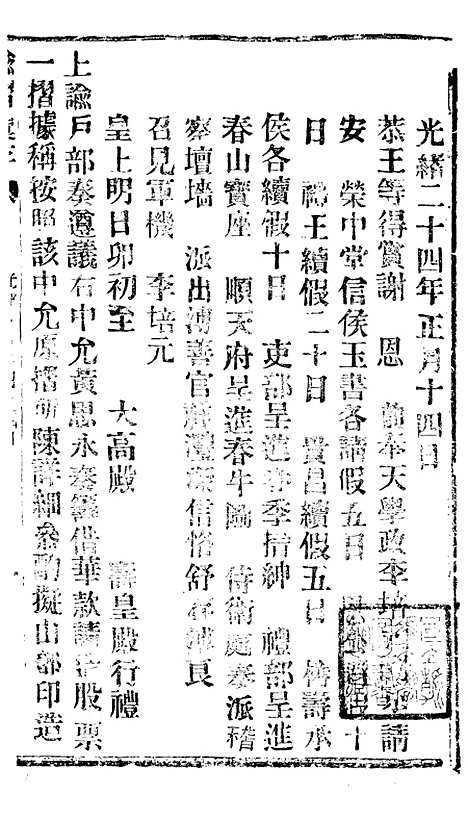 光緒二十四年正月十四日
恭王等得賞謝 恩 前奉天學政李培元 請
安 榮中堂信侯玉書各請假五日 十
日 禮王續假二十日 貴昌續假五日 壽承
侯各續假十日 吏部呈進春季搢紳 禮部呈進
春山寶座 順天府呈進春牛圖 侍衛處奏派稽
察壇墻 派出溥善官 信恪舒 良
召見軍機 李培元
皇上明日卯初至 大高殿 壽皇殿行禮
上諭戶部奏遵議右中允黃思永奏籌借華款請造股票
一摺據稱按照該中允原摺所陳詳細參酌擬由部印造